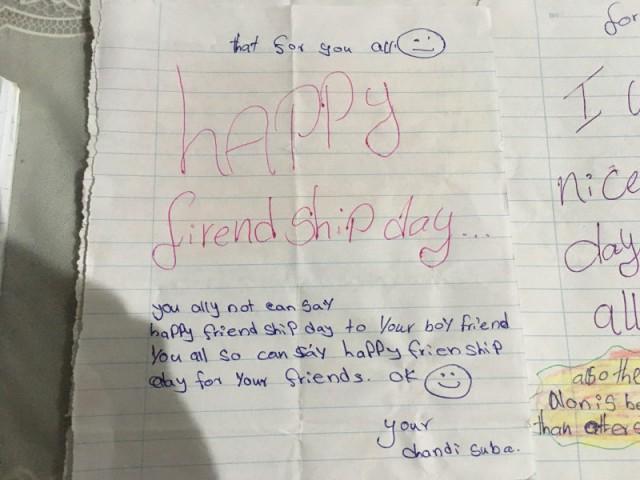 that for you all.
hAPPy
firend ship day...
you ally not can say
happy friend ship day to your boy friend
You all so can say happy frienship
day for your friends. OK
your
chandi suba.
for
I
nice
day
all
also the
alonis be
than others